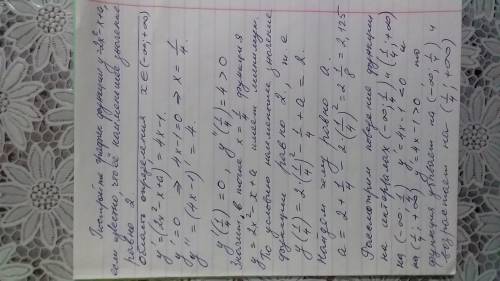 Постройте график функции y=2x²-x+a,
если известно, что её наименьшее значение
равно 2
область определения x∈(-∞;+∞)
y'=(2x²-x+a)'=4x-1.
y'=0 ⇒ 4x-1=0 ⇒ x=1/4.
y''=(4x-1)'=4.
y'(1/4)=0, y''(1/4)=4>0
Значит, в точке x=1/4 функция
y=2x²-x+a имеет минимум.
По условию наименьшее значение
функции равно 2, т.е
y(1/4)=2·(1/4)²-1/4+a=2.
Найдем чему равно a.
a=2+1/4-2(1/4)²=2 1/8=2,125
Рассмотрим поведение функции
на интервалах (-∞;1/4) и (1/4;+∞)
на (-∞;1/4) y'=4x-1<0 и
на (1/4;+∞) y'=4x-1>0, то
функция убывает на (-∞;1/4) и
возрастает на (1/4;+∞)